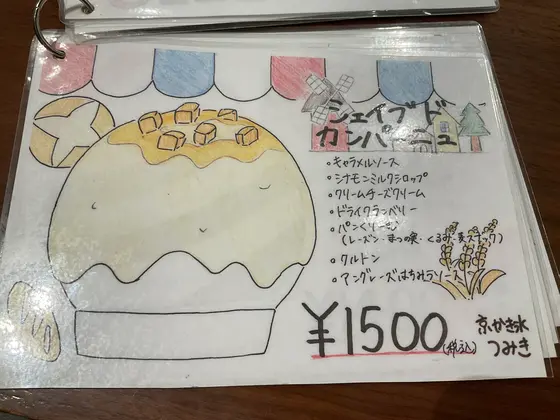 シェイブド
カンパーニュ
・キャラメルソース
・シナモンミルクシロップ
・クリームチーズクリーム
・ドライクランベリー
(レーズン・まつの実・くるみ・麦スナック)
・クルトン
・アングレーズはちみつソース
¥1500(税込)
京かき氷
つみき